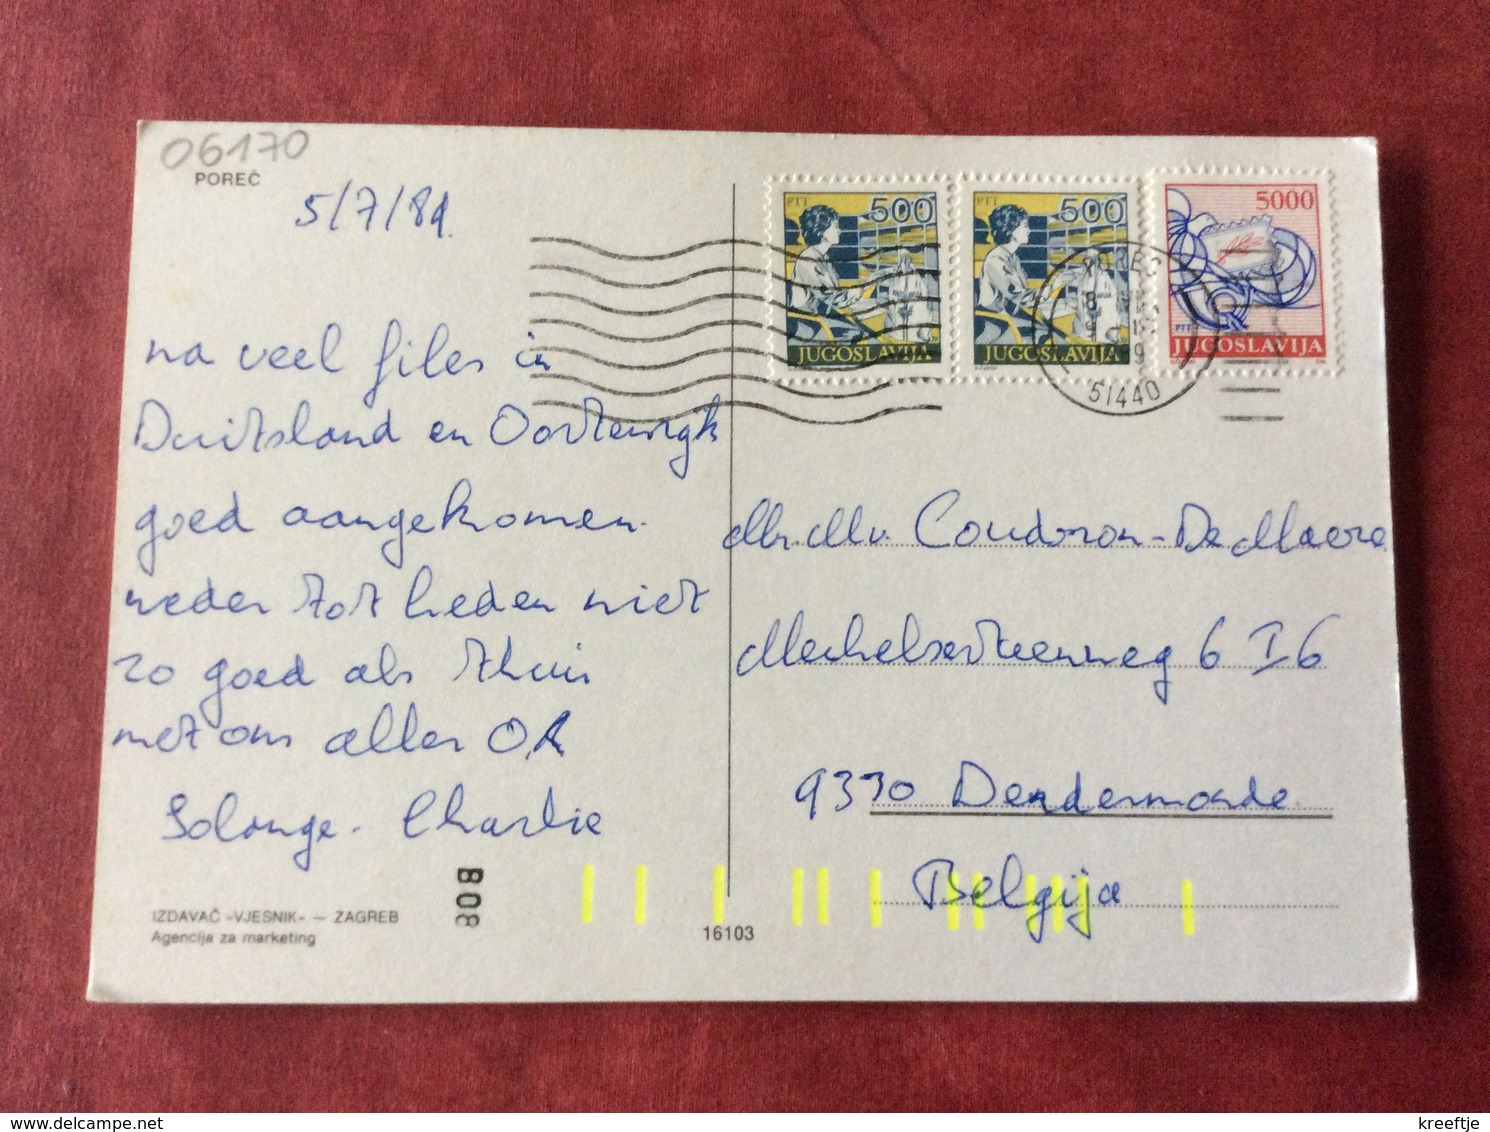 06170
POREČ
5/7/89.
na veel files in
Duitsland en Oostenrijk
goed aangekomen.
weder tot heden niet
zo goed als thuis
met ons alles OK
Solange - Charlie
IZDAVAČ «VJESNIK» — ZAGREB
Agencija za marketing
B08
16103
PTT 500
JUGOSLAVIJA
PTT 500
JUGOSLAVIJA
5000
PTT
JUGOSLAVIJA
POREČ
51440
Mr. Mv. Coudron - De Maere
Mechelsesteenweg 6 I 6
9330 Dendermonde
Belgija
kreeftje